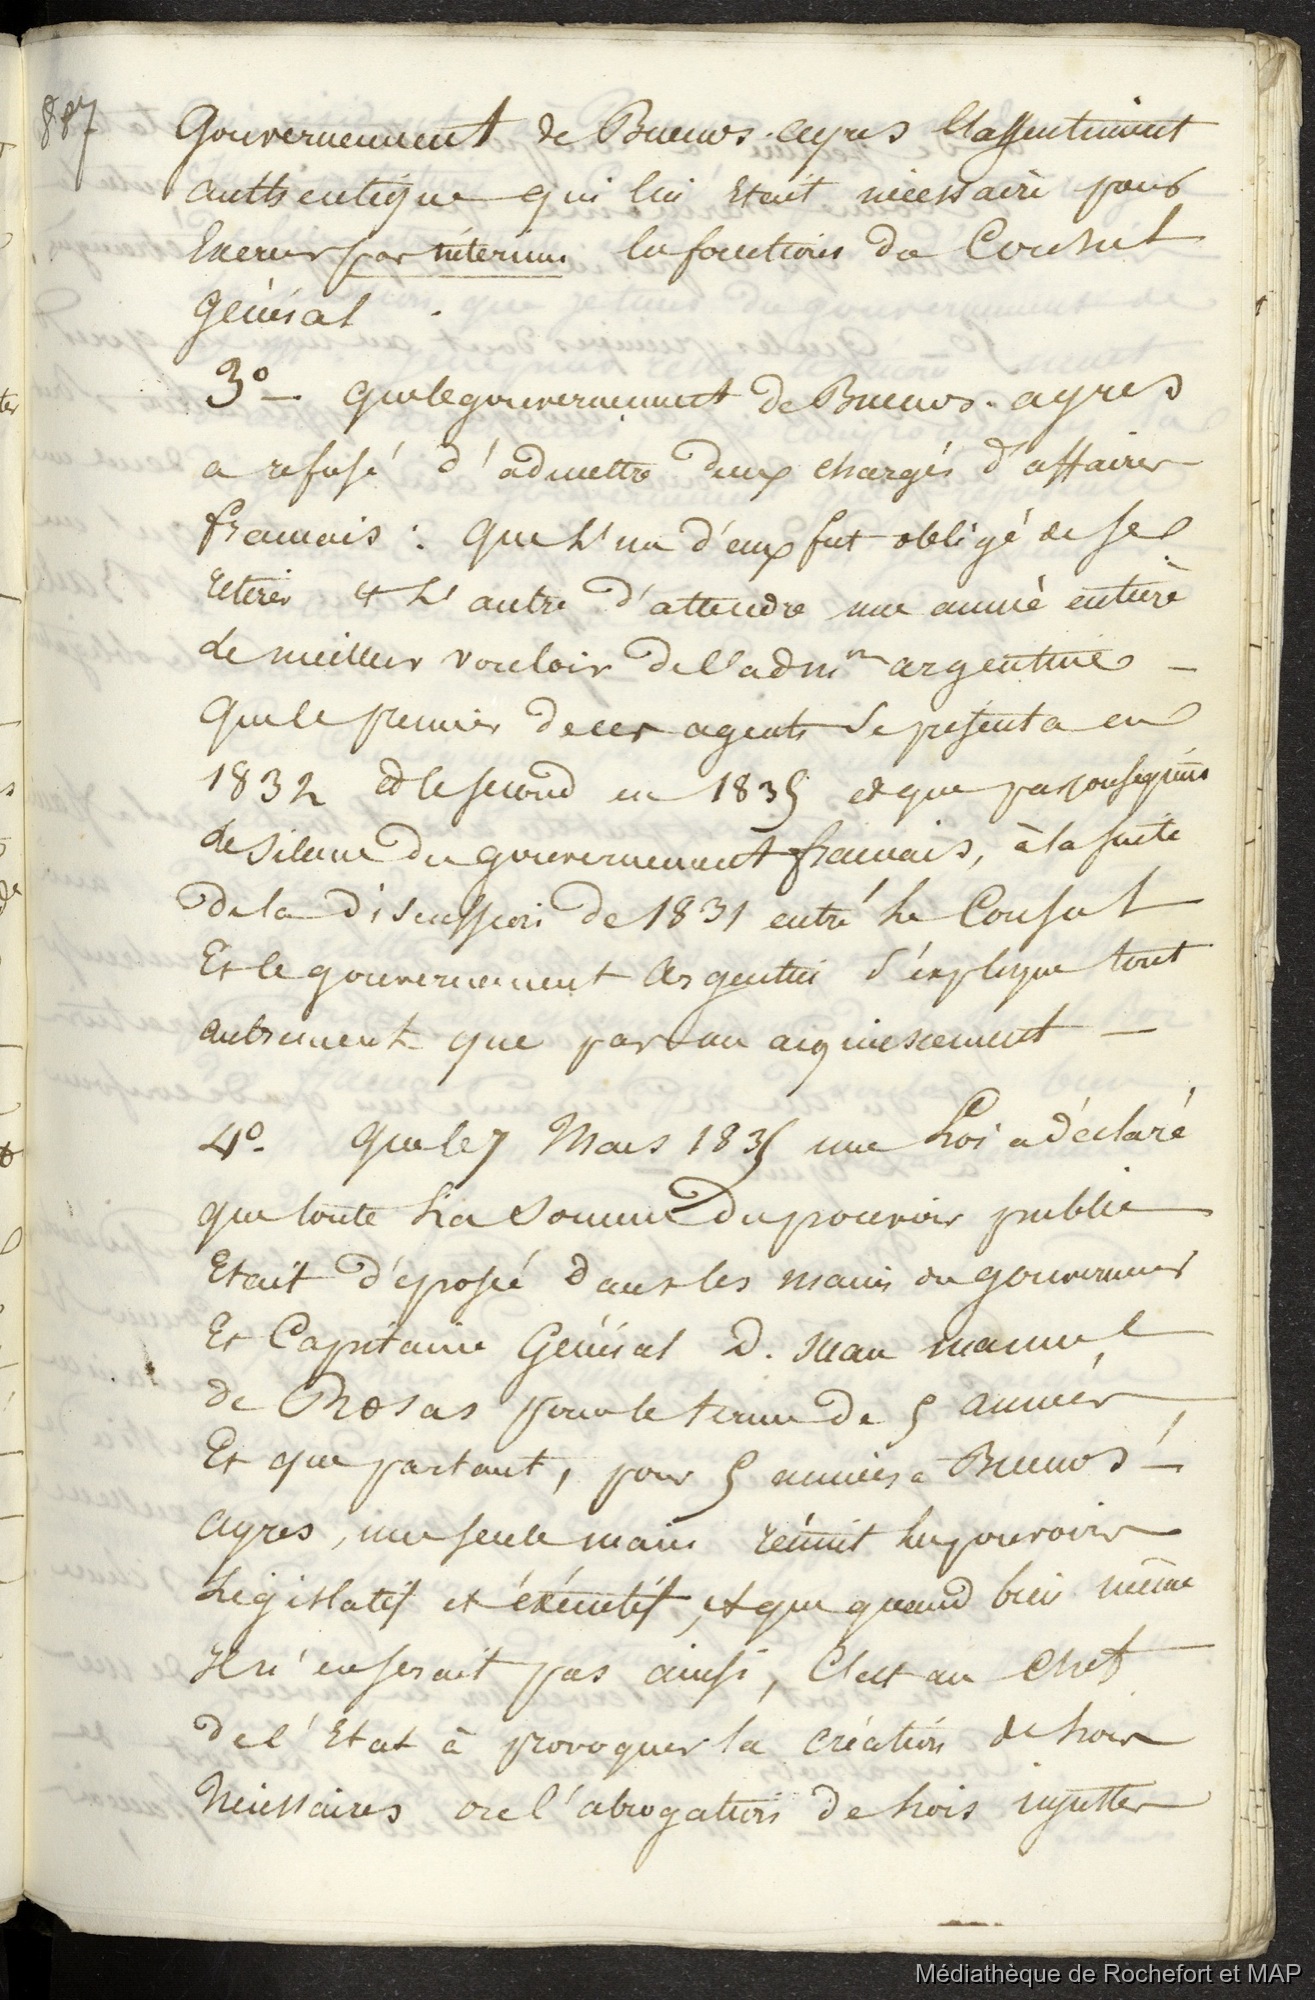 887
Gouvernement de Buenos-ayres l'assentiment
authentique qui lui Etait nécessaire pour
Exercer par interim les fonctions de Consul
Général.
3º — que le gouvernement de Buenos-ayres
a refusé d'admettre deux chargés d'affaires
français : que l'un d'eux fut obligé de se
retirer et l'autre d'attendre une année entière
le meilleur vouloir de l'admon argentine —
que le premier de ces agents se présenta en
1832 et le second en 1835 et que par conséquent
le silence du gouvernement français, à la suite
de la discussion de 1831 entre le Consul
Et le gouvernement Argentin s'explique tout
autrement que par un acquiescement —
4º. que le 7 Mars 1835 une Loi a déclaré
que toute La Somme du pouvoir public
Etait déposé dans les mains du gouverneur
Et Capitaine Général D. Juan manuel
de Rosas pour le terme de 5 années,
Et que partant, pour 5 années à Buenos-
ayres, une seule main réunit les pouvoirs
Législatif et éxécutif, et que quand bien même
il n'en serait pas ainsi, C'est au chef
de l'Etat à provoquer la création de Lois
Nécessaires ou l'abrogation de Lois injustes
Médiathèque de Rochefort et MAP